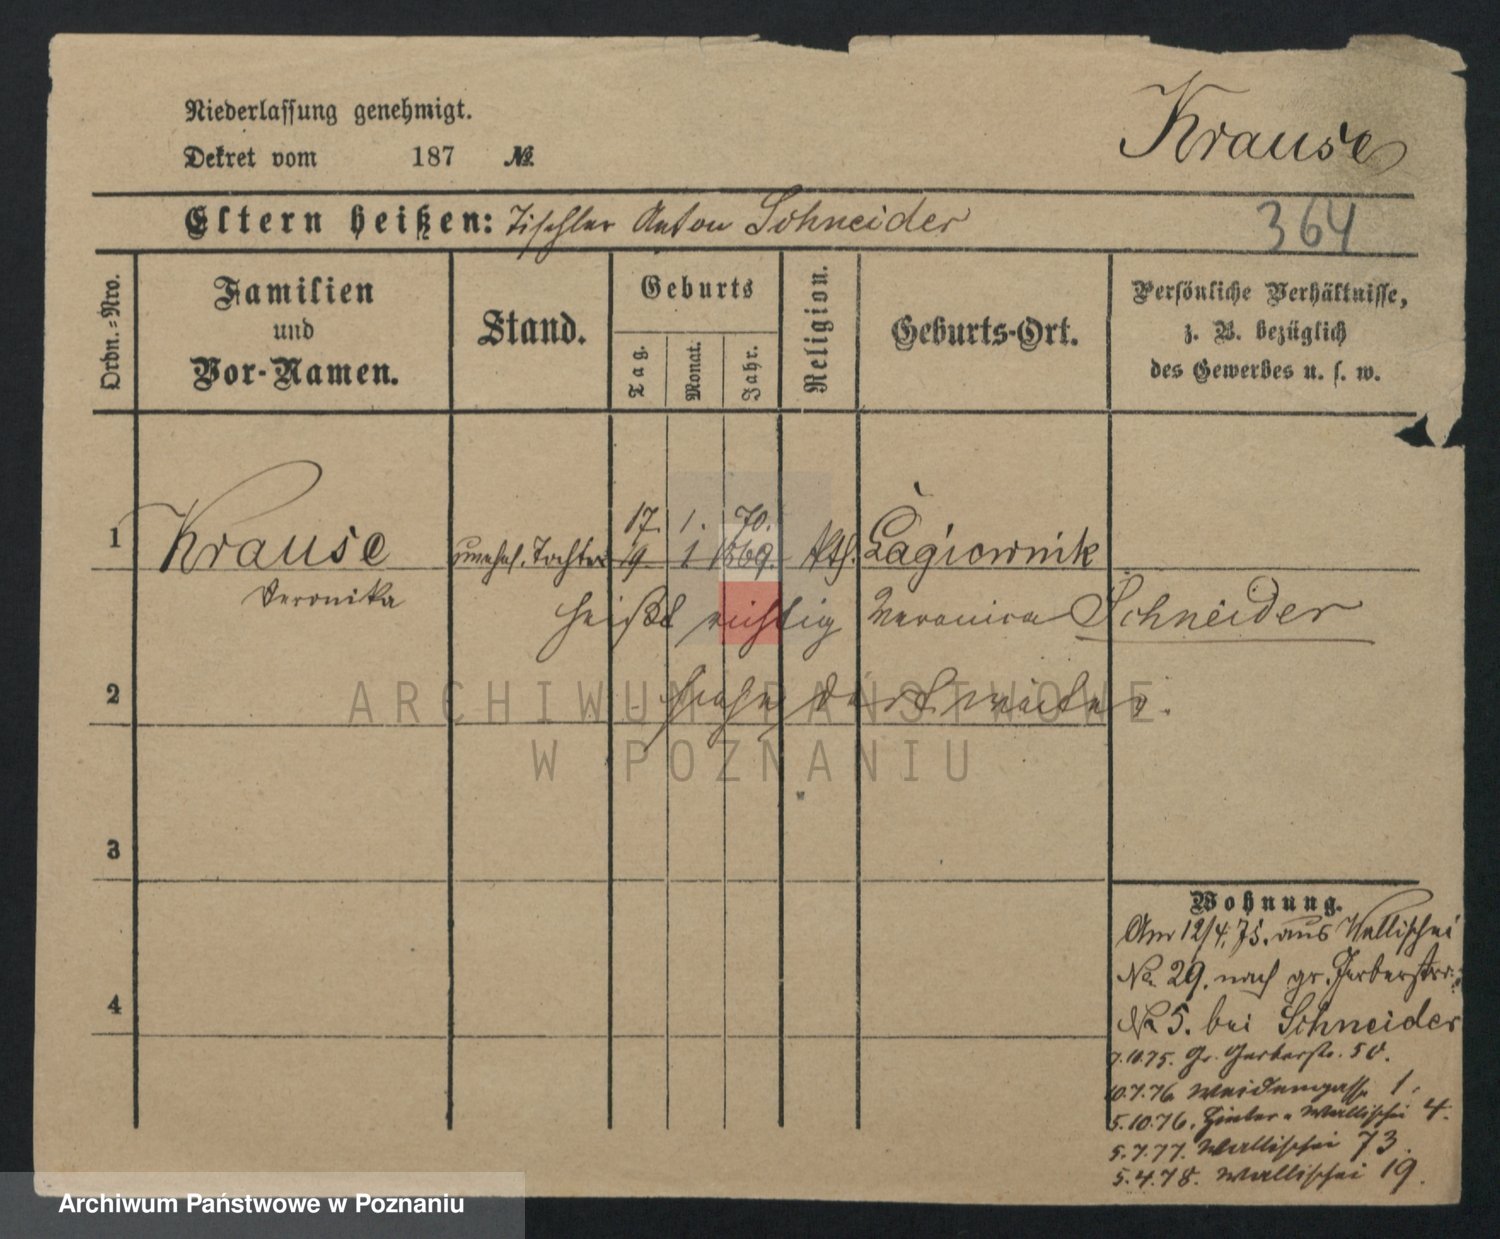 Niederlassung genehmigt.
Krause
Dekret vom 187 №.
Eltern heißen: Tischler Anton Schneider
364
Ordn.=Nro.
Familien
und
Vor-Namen.
Stand.
Geburts
Tag.
Monat.
Jahr.
Religion.
Geburts-Ort.
Persönliche Verhältnisse,
z. B. bezüglich
des Gewerbes u. s. w.
17. 1. 70.
1 Krause unehel. Tochter 19. 1 1869. kth. Łagiewnik
Veronika
heißt richtig Veronica Schneider
2 siehe dort weiter.
3
4
Wohnung.
Am 12/4.75. aus Wallischei
No. 29. nach gr. Gerberstr.
No 5. bei Schneider
7.10.75. Gr. Gerberstr. 50.
10.7.76 Weidengasse 1.
5.10.76. Hinter-Wallischei 4.
5.7.77. Wallischei 73.
5.4.78. Wallischei 19.
ARCHIWUM PAŃSTWOWE
W POZNANIU
Archiwum Państwowe w Poznaniu